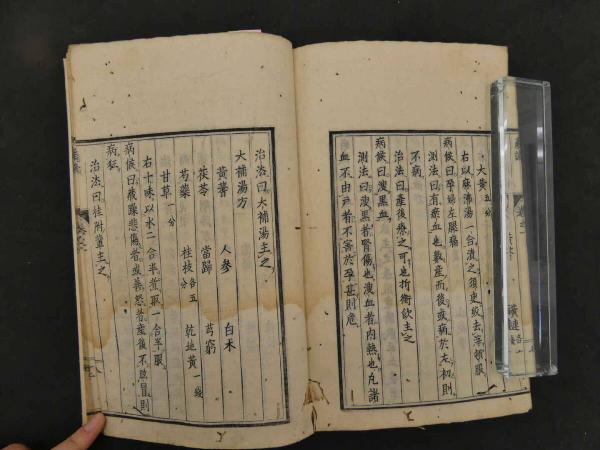 大黃五分
右以麻沸湯一合漬之須臾絞去滓頓服
病候曰孕婦左腿
測法曰有瘀血也數産而後或病於左初則
不病
治法曰産後療之可也折衝飲主之
病候曰溲黑血
測法曰溲黑者腎傷也溲血者内熱也凡諸
血不由者不害於孕甚則危
治法曰大補湯主之
大補湯方
黃耆 人參 白朮
茯苓 當歸 芎藭
芍藥 桂枝各五分 乾地黃一錢
甘草一分
右十味以水二合半煮取一合半服
病候曰或躁悲傷者或善怒者産後不冒則
病狂
治法曰桂附薑主之